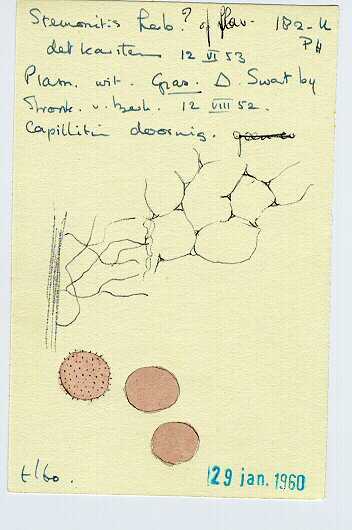 Stemonitis herb.? of flav. 182-U
PH
det Karsten 12 VI 53
Plasm. wit. Gras. D. Swart by
Stronk. v. besch. 12 VIII 52.
Capillitia doornig.
t/60.
29 jan. 1960